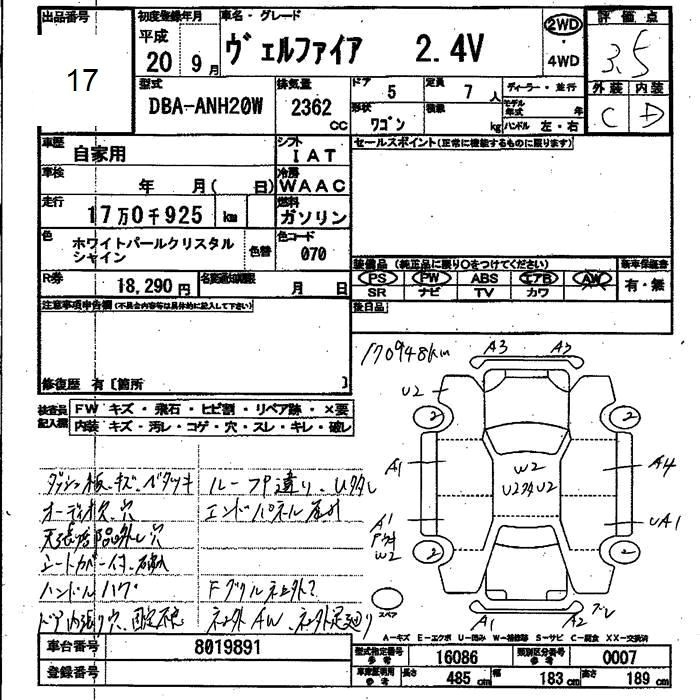 出品番号 初度登録年月 車名・グレード 評価点
17 平成 20 9月 ヴェルファイア 2.4V 2WD・4WD 3.5
型式 DBA-ANH20W 排気量 2362 CC ドア 5 定員 7人 ディーラー・並行 外装 内装
形状 ワゴン 積載 kg モデル年式 年 ハンドル 左・右 C D
車歴 自家用 シフト IAT セールスポイント(正常に機能するものに限ります)
車検 年 月( 日) 冷房 WAAC
走行 17万0千925 km 燃料 ガソリン
色 ホワイトパールクリスタル 色替 色コード 070
シャイン
装備品 (純正品に限り○をつけてください) 新車保証書
R券 18,290円 名変通知期限 月 日 PS PW ABS エアB AW 有・無
SR ナビ TV カワ
注意事項申告欄(不具合内容等は具体的に記入して下さい) 後日品
修復歴 有〔箇所 〕
170948km
A3 A3
U2 2 2
検査員 記入欄 FW キズ・飛石・ヒビ割・リペア跡・×要
内装 キズ・汚レ・コゲ・穴・スレ・キレ・破レ
A1 W2 A4
ダッシュ板キズ、ベタツキ ルーフP違り、
オーディオ欠、穴 エンドパネル
A1 W2 UA1
シートカバー付
2 2
ハンドルハゲ Fグリル
ドア内張り穴、 AW、
スペア A1 A2
A-キズ E-エクボ U-凹み W-補修跡 S-サビ C-腐食 XX-交換済
車台番号 8019891 型式指定番号 参考 16086 類別区分番号 参考 0007
登録番号 車庫証明用 参考 長さ 485 cm 幅 183 cm 高さ 189 cm